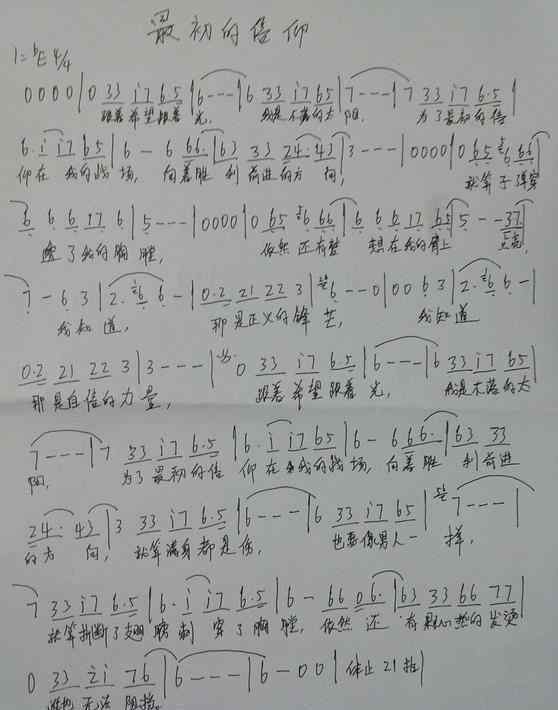 最初的信仰
1=bE 4/4
0000|033 i7 6.5|6---|6 33 i7 65|7---|7 33 i7 6.5|
跟着希望跟着 光, 我是不落的太 阳, 为了最初的信
6.i i7 65|6-6 66.|63 33 24.43|3---|0000|0 65 #6 66|
仰在 我的战 场, 向着胜 利 前进的方 向, 就算子弹穿
6 6 6 17 6|5---|0000|0 65 #6 66|6 6 6 17 65|5--37|
透了我的胸膛, 依然 还有梦 想在我的肩上
7-63|2.#6 6-|0.2 21 22 3|6--0|0063|2.#6 6-|
我知道, 那是正义的锋芒, 我知道
0.2 21 22 3|3---|0 33 i7 6.5|6---|6 33 i7 65|
那是自信的力量, 跟着希望跟着 光, 我是不落的太
7---|7 33 i7 6.5|6.i i7 65|6-6 66.|63 33
阳, 为了最初的信 仰在 我的战场, 向着胜 利前进
24.43|3 33 i7 6.5|6---|6 33 i7 65|7---|
的方 向, 就算满身都是伤, 也要像男人一 样,
7 33 i7 6.5|6.i i7 6.5|6-66 06.|63 33 66 77|
就算折断了翅膀刺 穿了胸膛, 依然 还 有 热的发烫
0 33 2i 76|6---|6-00|休止21拍|
无法 阻挡。